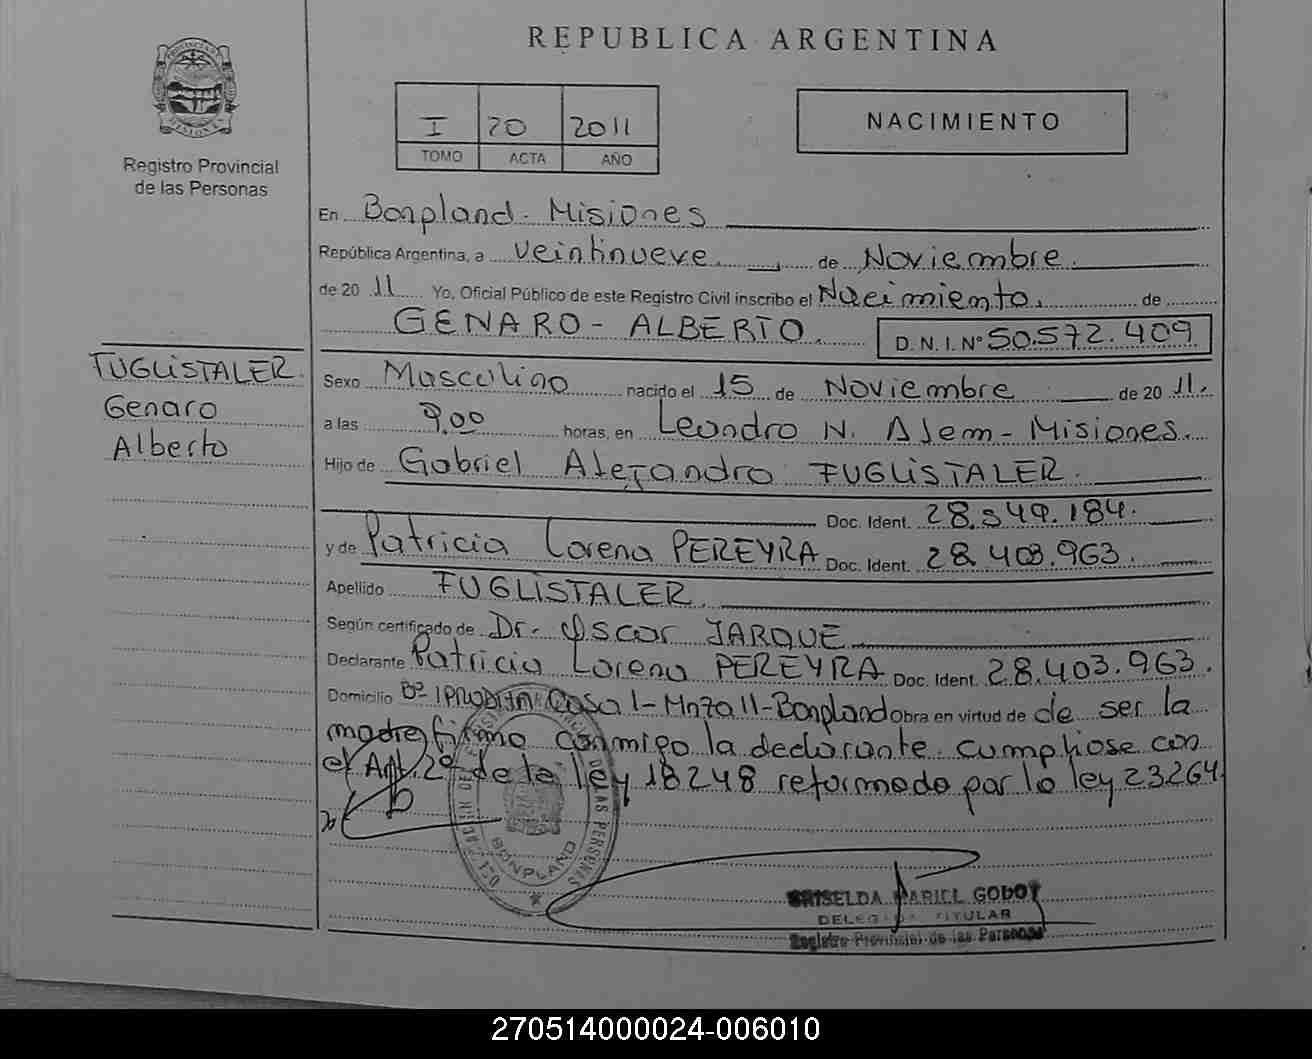 REPUBLICA ARGENTINA
PROVINCIA DE MISIONES
Registro Provincial
de las Personas
I 70 2011
TOMO ACTA AÑO
NACIMIENTO
En Bonpland - Misiones
República Argentina, a veintinueve de Noviembre
de 2011 Yo, Oficial Público de este Registro Civil inscribo el Nacimiento. de
GENARO - ALBERTO. D.N.I. Nº 50.572.409
FUGLISTALER
Genaro
Alberto
Sexo Masculino nacido el 15 de Noviembre de 2011.
a las 9.00 horas, en Leandro N. Alem - Misiones.
Hijo de Gabriel Alejandro FUGLISTALER
Doc. Ident. 28.549.184.
y de Patricia Lorena PEREYRA Doc. Ident. 28.403.963.
Apellido FUGLISTALER.
Según certificado de Dr. Oscar JARQUE
Declarante Patricia Lorena PEREYRA Doc. Ident. 28.403.963.
Domicilio Bº IPRODHA Casa 1 - Mnza 11 - Bonpland obra en virtud de de ser la
madre firma conmigo la declarante. cumpliose con
el Art. 2º de la ley 18248 reformado por la ley 23264
DE LAS PERSONAS
BONPLAND
GRISELDA MARIEL GODOY
DELEGADA TITULAR
Registro Provincial de las Personas
270514000024-006010